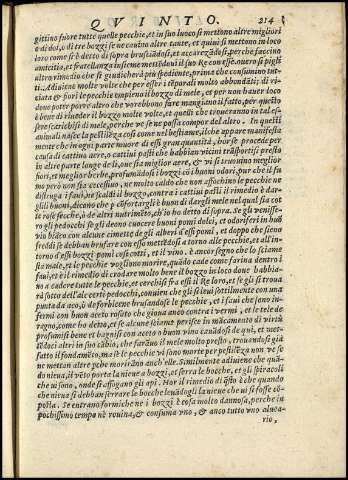 QVINTO. 214
gittino fuore tutte quelle pecchie, et in suo luoco si mettono altre migliori
o di doi, o di tre bozzi se ne canino altre tante, et quini si mettono in loco
loro come si è detto di sopra brusciādosi, et accarezādosi, perche faccino
amicitia, et fratellanza insieme mettēdoui il suo Re con esse. ouero si pigli
altro rimedio che si giudicherà più spediente, prima che consumino tut-
ti. Adiuiene molte volte che per esser i tēporali molto abbondāti; di ri-
ciata & fiori le pecchie empieno il bozzo di mele, et per non hauer loco
doue poter porre altro che vorebbono fare mangiano il fatto, per questo
è bene di riueder il bozzo molte volte, et quelli che troueranno in tal es-
sere scaricbisi di mele, perche ve se ne possa compor del altro. In questi
animali nasce la pestilēza cosi come nel bestiame, il che appare manifesta
mente che in ogni parte muore di essi gran quantità, hor se procede per
causa di cattiua aere, o cattiui pasti che habbian vicini trasportisi presto
in altre parte longe de li, oue sia miglior aere, & vi si truouino miglior
fiori, et miglior herbe, profumādosi i bozzi cō i buoni odori, pur che il fu
mo però non sia eccessiuo, ne molto caldo che non affochino le pecchie ne
distrugā i faui, ne scaldi il bozzo, contra i cattiui pasti il rimedio è dar-
gli buoni, diceuo che p cōfortargli è buon di dargli mele nel qual sia cot
te rose secche, ò de altri nutrimēti, ch'io ho detto di sopra. Se gli venisse-
ro gli pedocchi se gli deono cuocere buoni pomi dolci, et odoriferi in buō
vin biāco con alcune cimette de gli alberi d'essi pomi, et doppo che sieno
freddi se debban brusare con esso mettēdosi a torno alle pecchie, et all'in-
torno d'essi bozzi pomi assi cotti, et il vino. è ancor segno che lo sciame
sia male, et le pecchie vogliono morire, quādo cade come farina dentro i
faui, et è il rimedio di crodare molto bene il bozzo in loco doue habbia-
no a cadere tutte le pecchie, et cerchisi fra essi il Re loro, et se gli si troua
rà sotto dell'ale certi pedocchi, conuien che gli si leui sottilmente con una
punta da aco, o de forbicine brusandosi le pecchie, et i faui che sono in-
fermi con buon aceto rosato che gioua anco contra i vermi, et le tele de
ragno, come ho detto, et se alcune sciame perisse in mācamento di virtù
profumisi bene et bagnisi con aceto o buon vino cauādosi de qui, et met-
tēdoci altri in suo cābio, che faranno il mele molto presto, trouandosi già
fatto il fondamēto, ma se le pecchie vi sono morte per pestilēza non ve se
ne mettan altre pche moririano anch'elle. Similmente adiuiene che quā-
do nieua, il vēto porta la nieue a bozzi, et serra le bocche, et gli spiracoli
che vi sono, onde si affogan gli api. Hor il rimedio di questo è che quando
che nieua si debban serrare le bocche leuādogli la nieue che vi si fosse cō-
posta. Se entrano formiche ne i bozzi è cosa molto dannosa, perche in
pochissimo tempo ne rouina, & consuma vno, & anco tutto vno aluea-
rio,